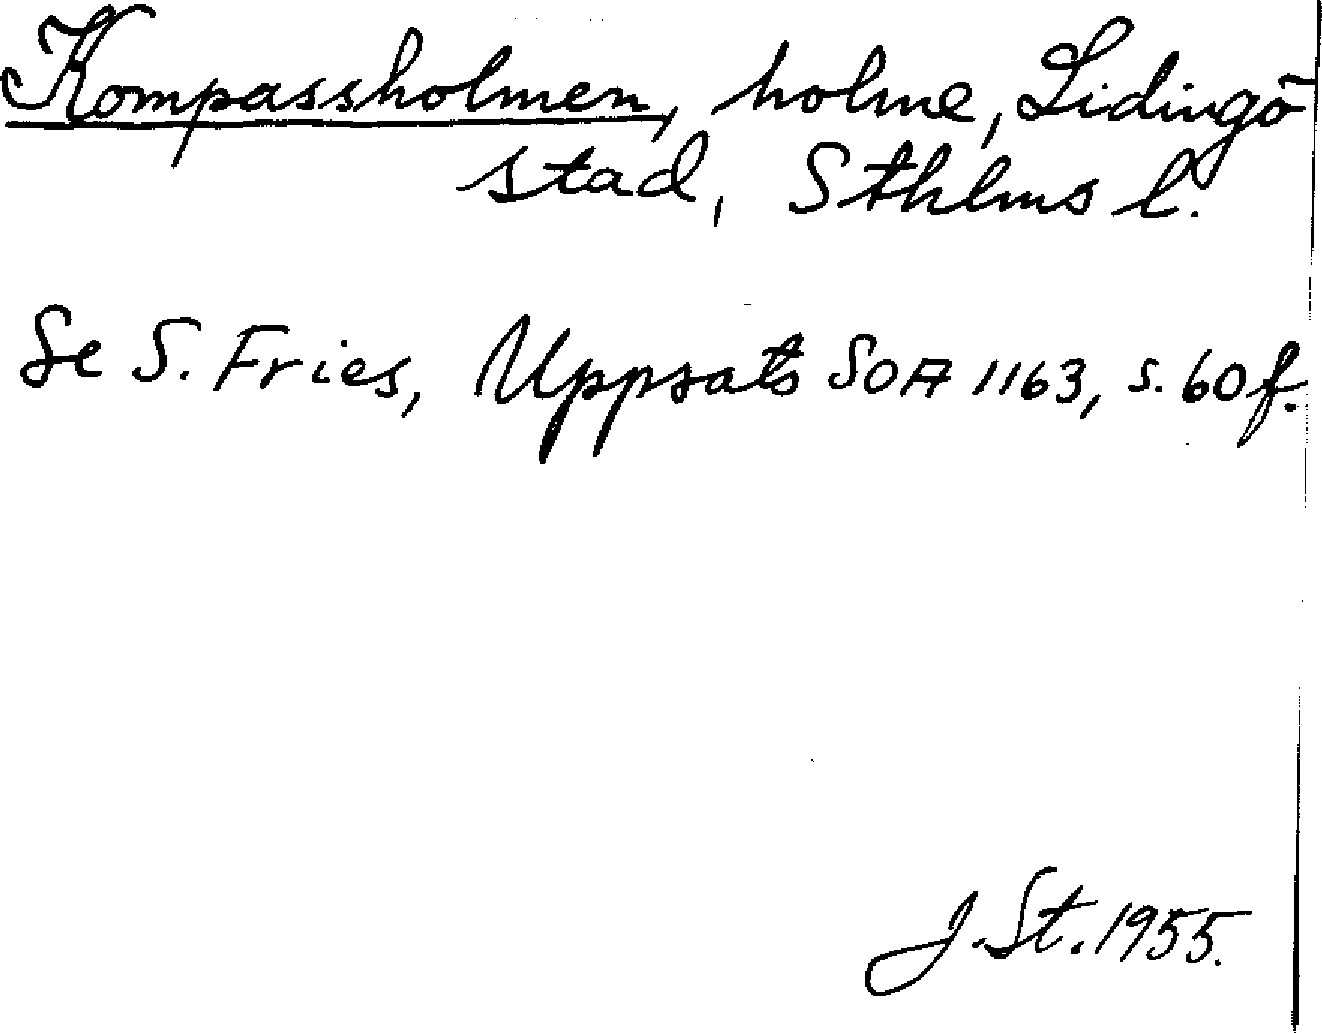 Kompassholmen, holme, Lidingö
stad, Sthlms l.
Se S. Fries, Uppsats SOA 1163, s. 60 f.
J. St. 1955.